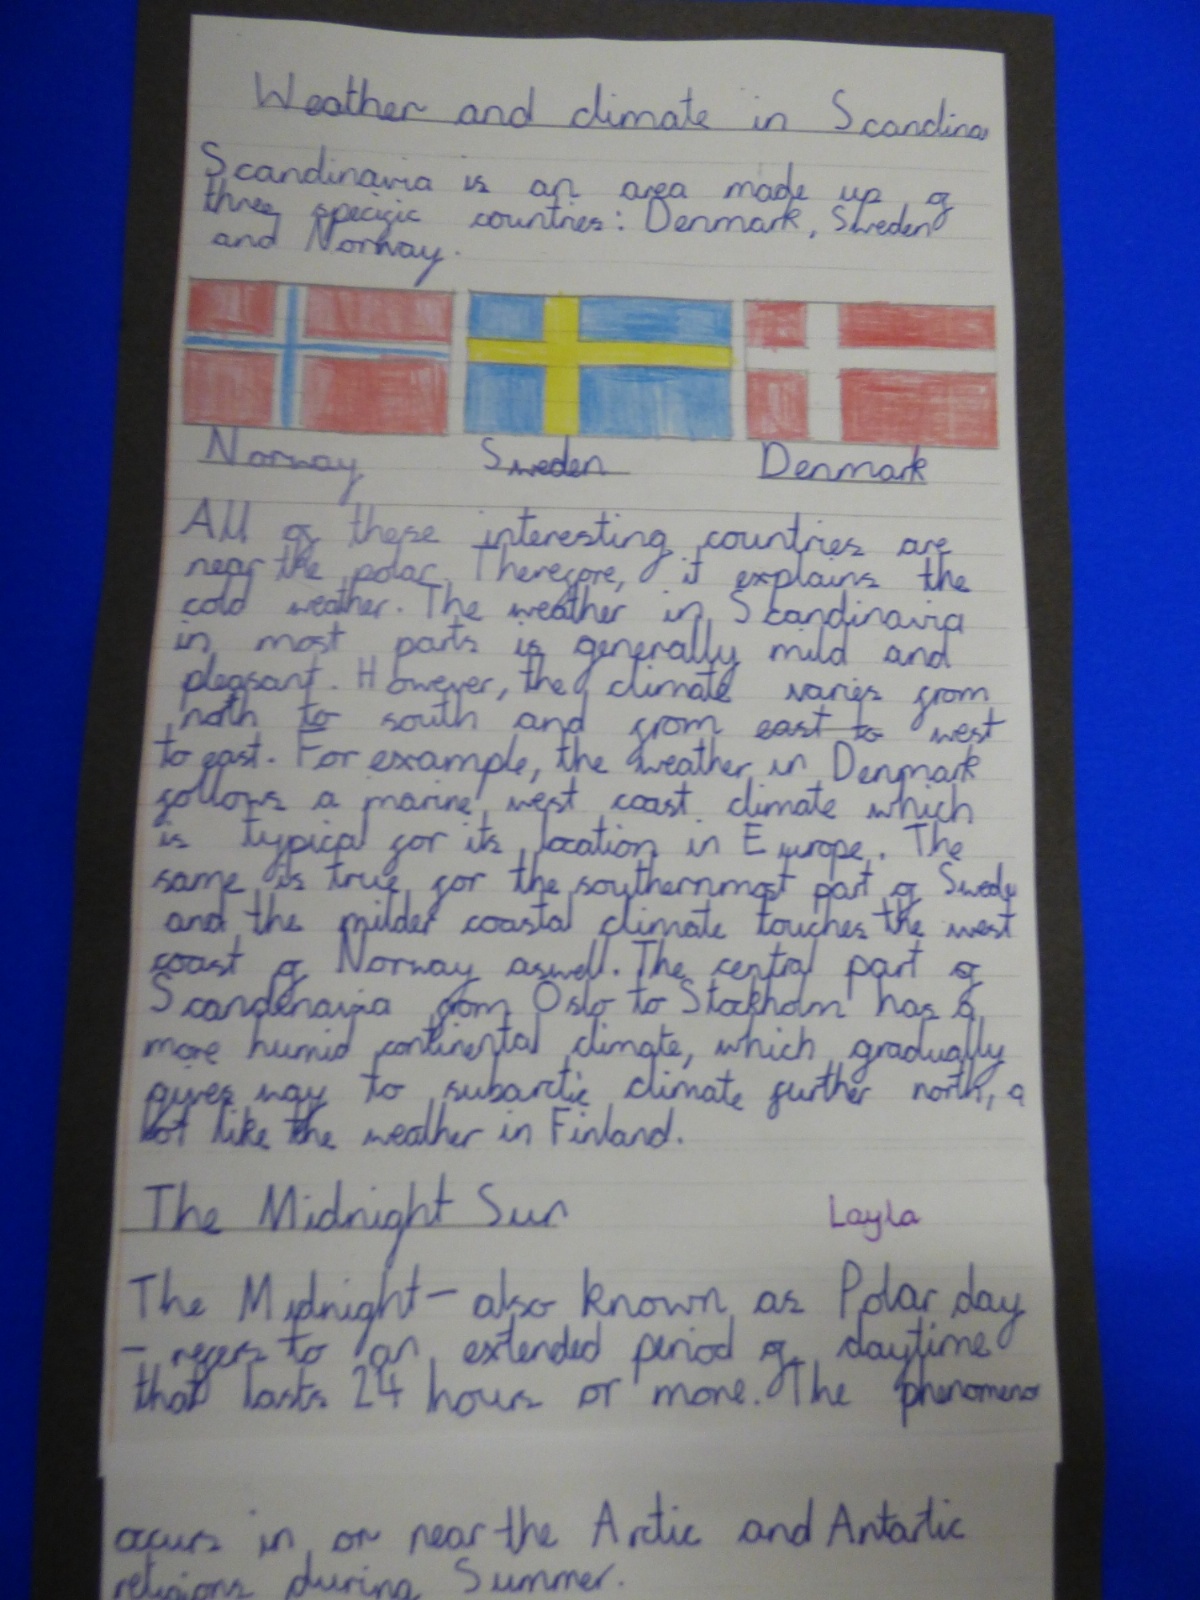 Weather and climate in Scandina
Scandinavia is an area made up of
three specific countries: Denmark, Sweden
and Norway.
Norway Sweden Denmark
All of these interesting countries are
near the polar. Therefore, it explains the
cold weather. The weather in Scandinavia
in most parts is generally mild and
pleasant. However, the climate varies from
north to south and from east to west
to east. For example, the weather in Denmark
follows a marine west coast climate which
is typical for its location in Europe. The
same is true for the southernmost part of Swede
and the milder coastal climate touches the west
coast of Norway aswell. The central part of
Scandenavia from Oslo to Stockholm has a
more humid continental climate, which gradually
gives way to subarctic climate further north, a
lot like the weather in Finland.
The Midnight Sun Layla
The Midnight - also known as Polar day
- refers to an extended period of daytime
that lasts 24 hours or more. The phenomenon
occurs in or near the Arctic and Antartic
religions during Summer.